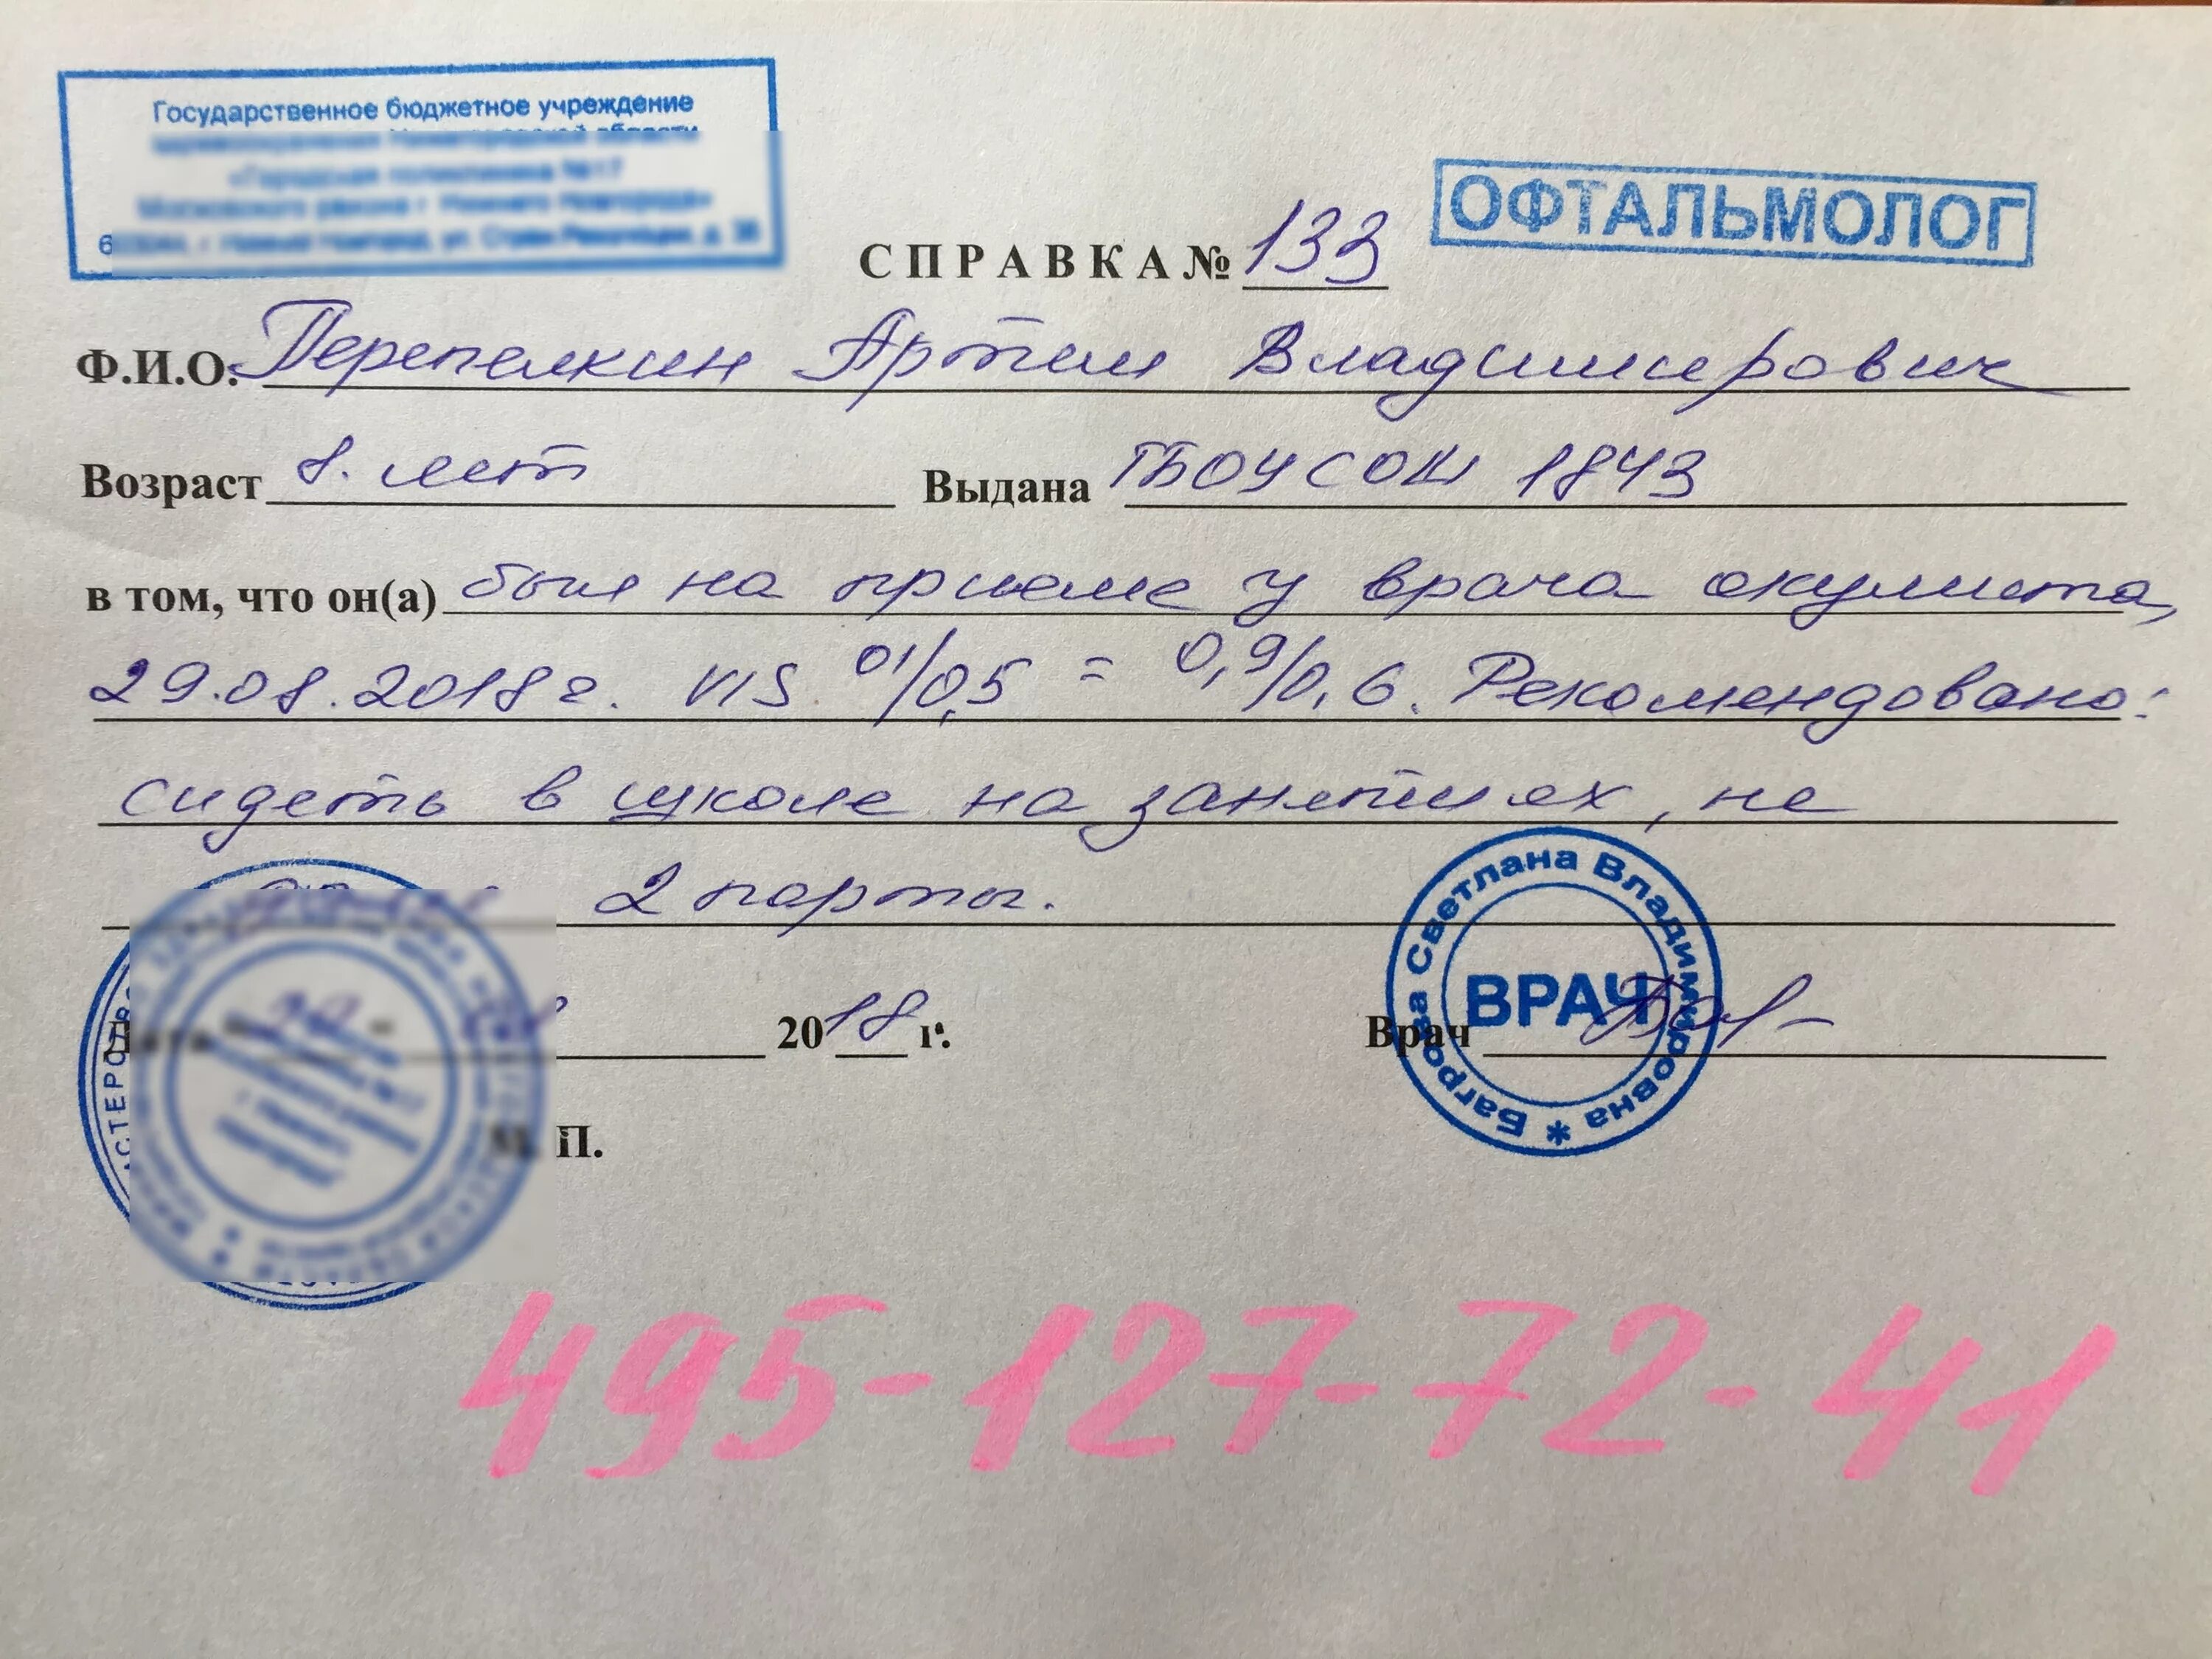 Государственное бюджетное учреждение
ОФТАЛЬМОЛОГ
СПРАВКА № 133
Ф.И.О. Перепелкин Артем Владимирович
Возраст 8. лет Выдана ГБОУ СОШ 1843
в том, что он(а) был на приеме у врача окулиста,
29.08.2018г. VIS 01/0,5 = 0,9/0,6. Рекомендовано:
сидеть в школе на занятиях, не
2 парты.
2018 г. Врач
Багрова Светлана Владимировна * ВРАЧ
М.П.
495-127-72-41